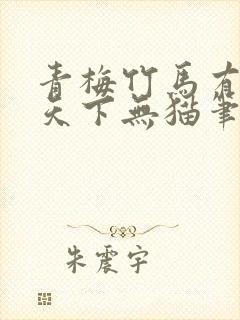 青梅竹馬有
天下無貓筆
朱震宇